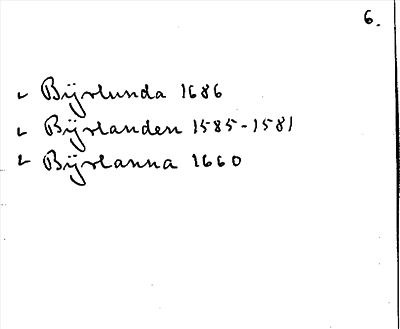 6.
Bÿrlunda 1686
Bÿrlanden 1585-1581
Bÿrlanna 1660